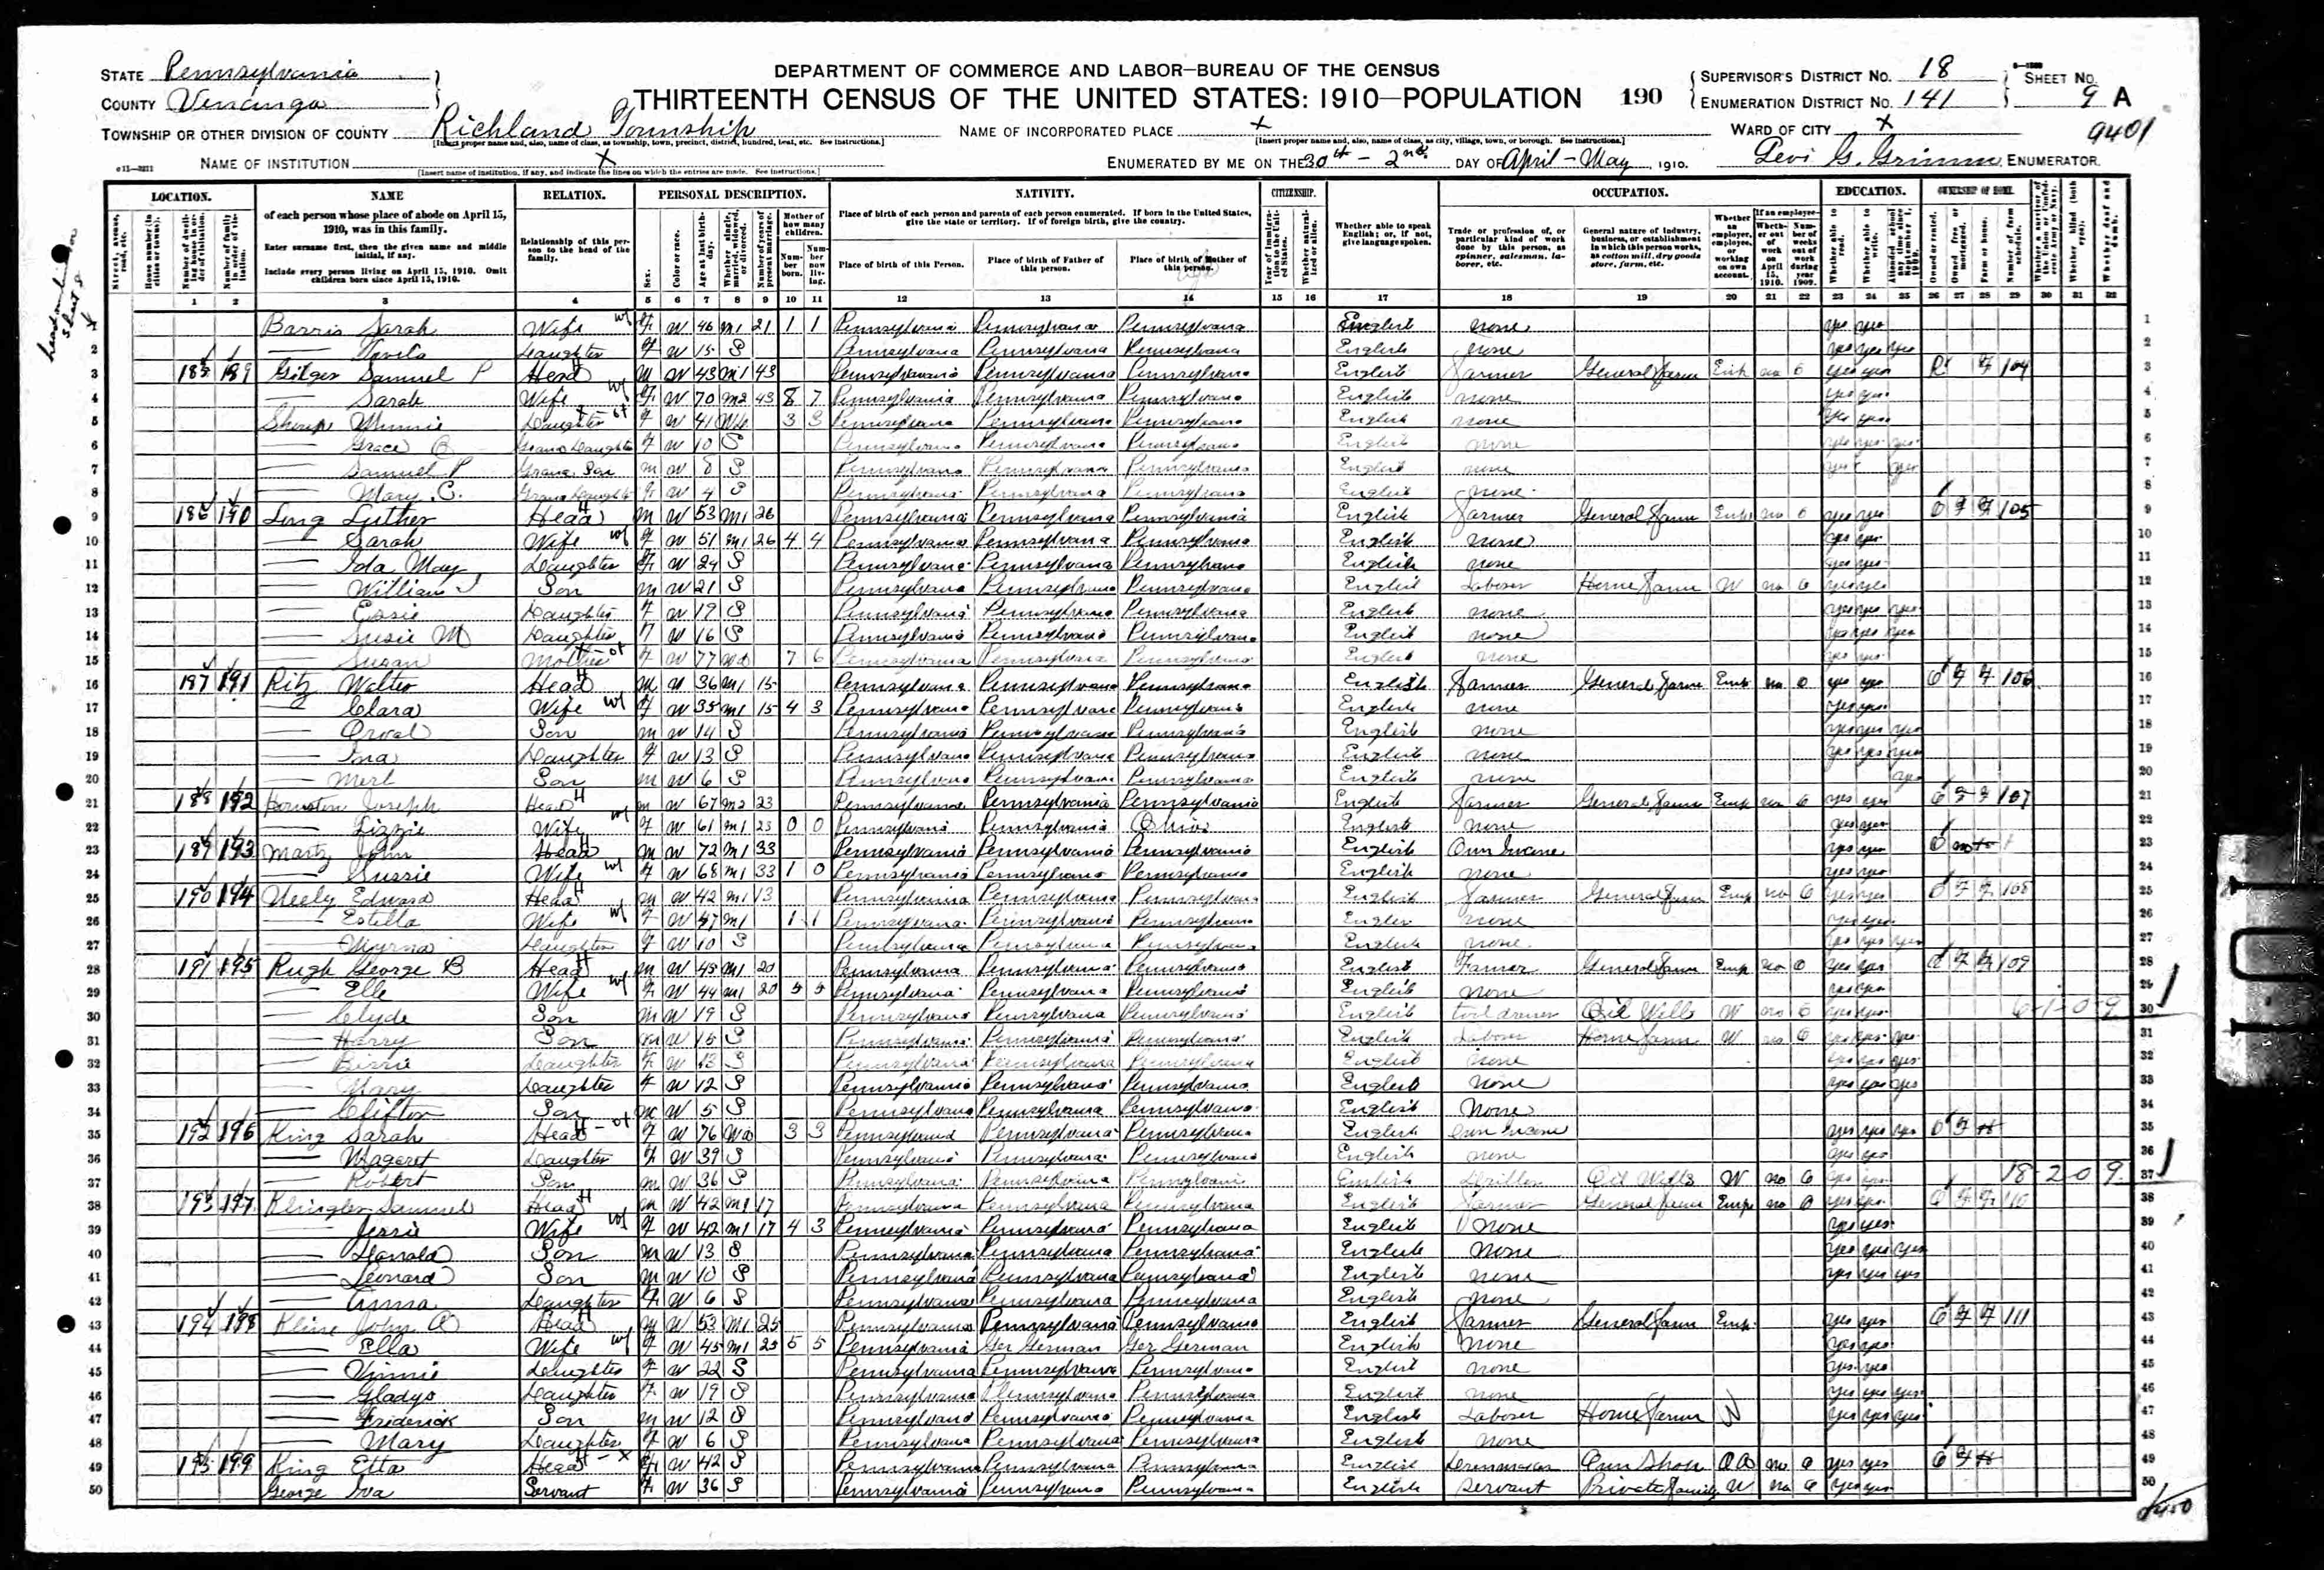 DEPARTMENT OF COMMERCE AND LABOR—BUREAU OF THE CENSUS
THIRTEENTH CENSUS OF THE UNITED STATES: 1910—POPULATION 190
STATE Pennsylvania
COUNTY Venango
TOWNSHIP OR OTHER DIVISION OF COUNTY Richland Township
NAME OF INSTITUTION X
NAME OF INCORPORATED PLACE X
ENUMERATED BY ME ON THE 30th - 2nd DAY OF April - May, 1910.
SUPERVISOR'S DISTRICT No. 18
ENUMERATION DISTRICT No. 141
SHEET No. 9 A
WARD OF CITY X
9401
Levi G. Grimm ENUMERATOR.
LOCATION. NAME RELATION. PERSONAL DESCRIPTION. NATIVITY. CITIZENSHIP. OCCUPATION. EDUCATION. OWNERSHIP OF HOME.
of each person whose place of abode on April 15, 1910, was in this family.
Enter surname first, then the given name and middle initial, if any.
Include every person living on April 15, 1910. Omit children born since April 15, 1910.
Relationship of this person to the head of the family.
Place of birth of each person and parents of each person enumerated. If born in the United States, give the state or territory. If of foreign birth, give the country.
Place of birth of this Person. Place of birth of Father of this person. Place of birth of Mother of this person.
Whether able to speak English; or, if not, give language spoken.
Trade or profession of, or particular kind of work done by this person, as spinner, salesman, laborer, etc.
General nature of industry, business, or establishment in which this person works, as cotton mill, dry goods store, farm, etc.
1 2 3 4 5 6 7 8 9 10 11 12 13 14 15 16 17 18 19 20 21 22 23 24 25 26 27 28 29 30 31 32
1 Sarah Wife F W 46 M1 21 1 1 Pennsylvania Pennsylvania Pennsylvania English none yes yes
2 Daughter F W 15 S Pennsylvania Pennsylvania Pennsylvania English none yes yes yes
3 189 Samuel P Head M W 43 M1 43 Pennsylvania Pennsylvania Pennsylvania English Farmer General Farm Emp no 0 yes yes R F 104
4 Sarah Wife F W 70 M2 43 8 7 Pennsylvania Pennsylvania Pennsylvania English none yes yes
5 Minnie Daughter F W 41 Wd 3 3 Pennsylvania Pennsylvania Pennsylvania English none yes yes
6 Grace Grand Daughter F W 10 S Pennsylvania Pennsylvania Pennsylvania English none yes yes yes
7 Samuel P Grand Son M W 8 S Pennsylvania Pennsylvania Pennsylvania English none yes yes
8 Mary C. Grand Daughter F W 4 S Pennsylvania Pennsylvania Pennsylvania English none
9 186 190 Ling Luther Head M W 53 M1 26 Pennsylvania Pennsylvania Pennsylvania English Farmer General Farm Emp no 0 yes yes O F F 105
10 Sarah Wife F W 51 M1 26 4 4 Pennsylvania Pennsylvania Pennsylvania English none yes yes
11 Ida May Daughter F W 24 S Pennsylvania Pennsylvania Pennsylvania English none yes yes
12 William Son M W 21 S Pennsylvania Pennsylvania Pennsylvania English Laborer Home Farm W no 0 yes yes
13 Essie Daughter F W 19 S Pennsylvania Pennsylvania Pennsylvania English none yes yes yes
14 Susie M Daughter F W 16 S Pennsylvania Pennsylvania Pennsylvania English none yes yes yes
15 Susan Mother F W 77 Wd 7 6 Pennsylvania Pennsylvania Pennsylvania English none yes yes
16 187 191 Ritz Walter Head M W 36 M1 15 Pennsylvania Pennsylvania Pennsylvania English Farmer General Farm Emp no 0 yes yes O F F 106
17 Clara Wife F W 35 M1 15 4 3 Pennsylvania Pennsylvania Pennsylvania English none yes yes
18 Orval Son M W 14 S Pennsylvania Pennsylvania Pennsylvania English none yes yes yes
19 Ina Daughter F W 13 S Pennsylvania Pennsylvania Pennsylvania English none yes yes yes
20 Merl Son M W 6 S Pennsylvania Pennsylvania Pennsylvania English none yes
21 188 192 Joseph Head M W 67 M2 23 Pennsylvania Pennsylvania Pennsylvania English Farmer General Farm Emp no 0 yes yes O F F 107
22 Lizzie Wife F W 61 M1 23 0 0 Pennsylvania Pennsylvania Ohio English none yes yes
23 189 193 Martz John Head M W 72 M1 33 Pennsylvania Pennsylvania Pennsylvania English Own Income yes yes O
24 Sussie Wife F W 68 M1 33 1 0 Pennsylvania Pennsylvania Pennsylvania English none yes yes
25 190 194 Neely Edward Head M W 42 M1 13 Pennsylvania Pennsylvania Pennsylvania English Farmer General Farm Emp no 0 yes yes O F F 108
26 Estella Wife F W 47 M1 1 1 Pennsylvania Pennsylvania Pennsylvania English none yes yes
27 Myrna Daughter F W 10 S Pennsylvania Pennsylvania Pennsylvania English none yes yes yes
28 191 195 Rugh George B Head M W 45 M1 20 Pennsylvania Pennsylvania Pennsylvania English Farmer General Farm Emp no 0 yes yes O F F 109
29 Elle Wife F W 44 M1 20 5 5 Pennsylvania Pennsylvania Pennsylvania English none yes yes
30 Clyde Son M W 19 S Pennsylvania Pennsylvania Pennsylvania English Oil Wells W no 0 yes yes 6-1-0-9
31 Harry Son M W 15 S Pennsylvania Pennsylvania Pennsylvania English Laborer Home Farm W no 0 yes yes yes
32 Daughter F W 13 S Pennsylvania Pennsylvania Pennsylvania English none yes yes yes
33 Mary Daughter F W 12 S Pennsylvania Pennsylvania Pennsylvania English None yes yes yes
34 Clifton Son M W 5 S Pennsylvania Pennsylvania Pennsylvania English None
35 192 196 King Sarah Head F W 76 Wd 3 3 Pennsylvania Pennsylvania Pennsylvania English Own Income yes yes yes O F H
36 Magaret Daughter F W 39 S Pennsylvania Pennsylvania Pennsylvania English none yes yes
37 Robert Son M W 36 S Pennsylvania Pennsylvania Pennsylvania English Driller Oil Wells W no 0 yes yes 18-2 0 9
38 193 197 Klingler Samuel Head M W 42 M1 17 Pennsylvania Pennsylvania Pennsylvania English Farmer General Farm Emp no 0 yes yes O F F 110
39 Jessie Wife F W 42 M1 17 4 3 Pennsylvania Pennsylvania Pennsylvania English None yes yes
40 Harrold Son M W 13 S Pennsylvania Pennsylvania Pennsylvania English None yes yes yes
41 Leonard Son M W 10 S Pennsylvania Pennsylvania Pennsylvania English none yes yes yes
42 Anna Daughter F W 6 S Pennsylvania Pennsylvania Pennsylvania English none
43 194 198 Kline John A Head M W 53 M1 25 Pennsylvania Pennsylvania Pennsylvania English Farmer General Farm Emp yes yes O F F 111
44 Ella Wife F W 45 M1 25 5 5 Pennsylvania Ger German Ger German English None yes yes
45 Daughter F W 22 S Pennsylvania Pennsylvania Pennsylvania English none yes yes
46 Gladys Daughter F W 19 S Pennsylvania Pennsylvania Pennsylvania English none yes yes yes
47 Friderick Son M W 12 S Pennsylvania Pennsylvania Pennsylvania English Laborer Home Farm W yes yes yes
48 Mary Daughter F W 6 S Pennsylvania Pennsylvania Pennsylvania English none
49 195 199 King Etta Head F W 42 S Pennsylvania Pennsylvania Pennsylvania English Dressmaker Own Shop OA no 0 yes yes O F H
50 George Iva Servant F W 36 S Pennsylvania Pennsylvania Pennsylvania English Servant Private Family W no 0 yes yes